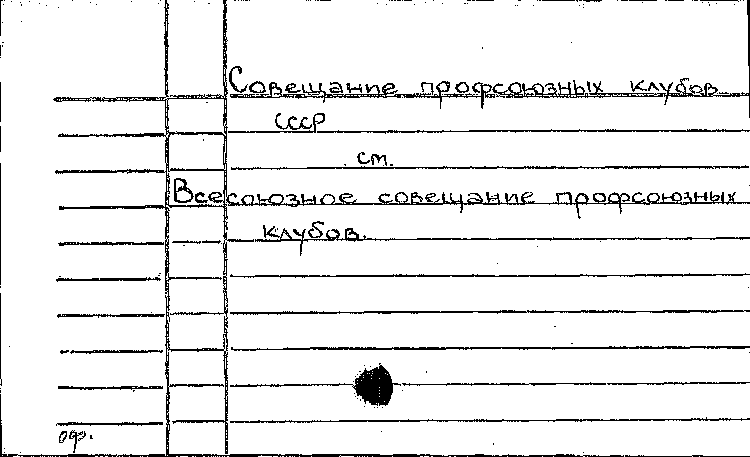 Совещание профсоюзных клубов
СССР
см.
Всесоюзное совещание профсоюзных
клубов.
оф.